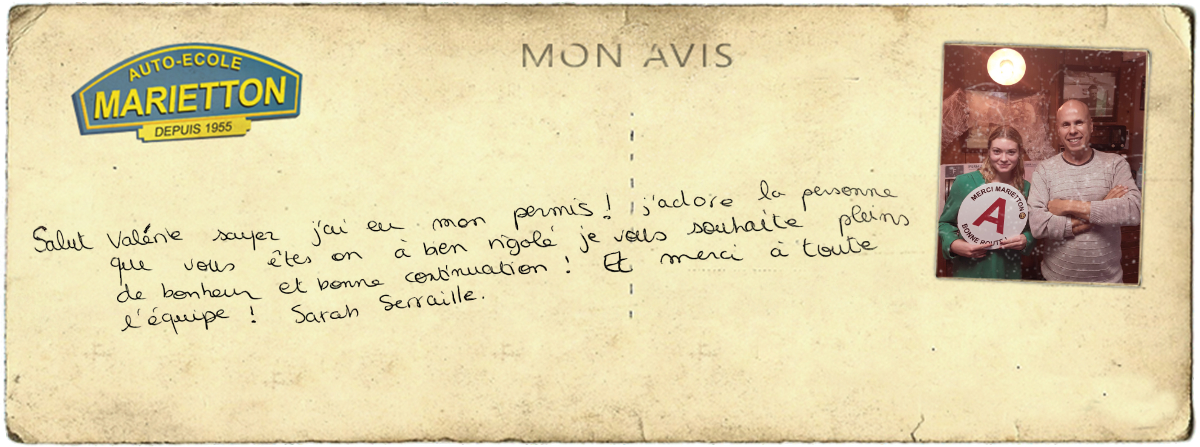 AUTO-ECOLE
MARIETTON
DEPUIS 1955
MON AVIS
MERCI MARIETTON
A
BONNE ROUTE !
Salut Valérie sayez j'ai eu mon permis ! j'adore la personne
que vous êtes on à ben rigolé je vous souhaite pleins
de bonheur et bonne continuation ! Et merci à toute
l'équipe ! Sarah Serraille.